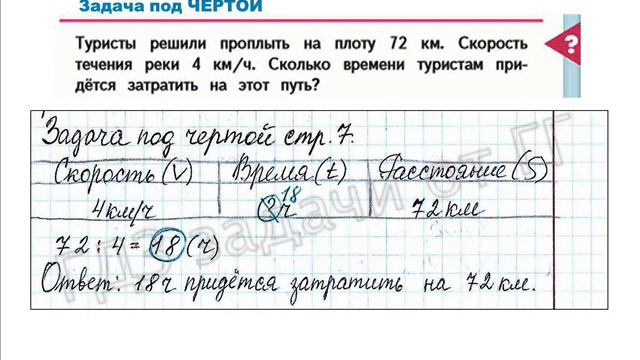 Задача под ЧЕРТОЙ
Туристы решили проплыть на плоту 72 км. Скорость
течения реки 4 км/ч. Сколько времени туристам при-
дётся затратить на этот путь?
?
Задача под чертой стр. 7.
Скорость (V) Время (t) Расстояние (S)
18
4 км/ч ? ч 72 км
72 : 4 = 18 (ч)
Ответ: 18 ч придётся затратить на 72 км.
ГДЗ задачи от ГГ